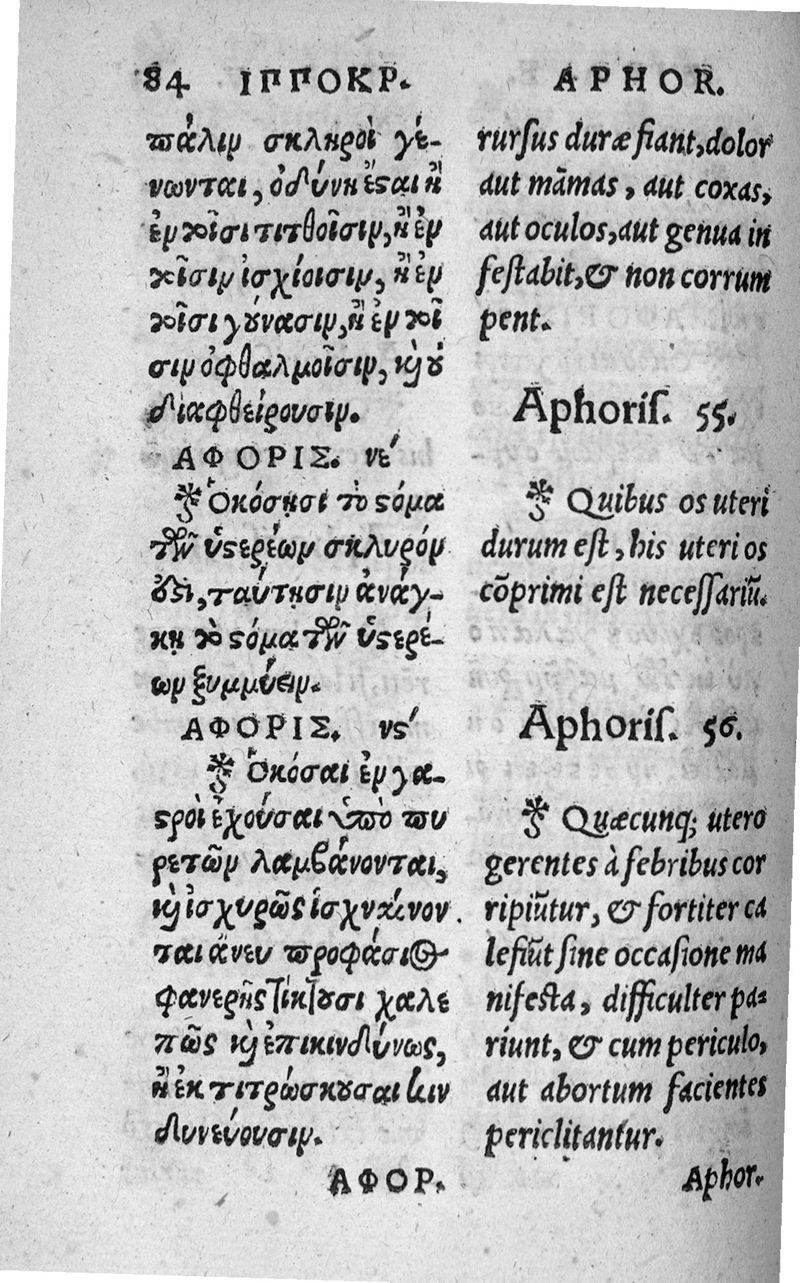 84 ΙΠΠΟΚΡ.
πάλιν σκληροὶ γέ-
νωνται, ὀδύνη ἔςαι ἢ
ἐν τοῖσι τιτθοῖσιν, ἢ ἐν
τοῖσιν ἰσχίοισιν, ἢ ἐν
τοῖσι γόνασιν, ἢ ἐν τοῖ
σιν ὀφθαλμοῖσιν, κỳ ȣ́
διαφθείρουσιν.
ΑΦΟΡΙΣ. νέ
Ὁκόσῃσι τὸ ςόμα
τῶν ὑςερέων σκλυρόν
ὅςι, ταύτῃσιν ἀνάγ-
κη τὸ ςόμα τῶν ὑςερέ-
ων ξυμμύειν.
ΑΦΟΡΙΣ. νς΄
Ὁκόσαι ἐν γα-
ςρὶ ἐχοῦσαι ὑπὸ πυ
ρετῶν λαμβάνονται,
κỳ ἰσχυρῶς ἰσχναίνον.
ται ἄνευ προφάσιος
φανερῆς τίκτουσι χαλε
πῶς κỳ ἐπικινδύνως,
ἢ ἐκτιτρώσκȣσαι κιν
δυνεύουσιν.
ΑΦΟΡ.
APHOR.
rurſus duræ fiant, dolor
aut mãmas, aut coxas,
aut oculos, aut genua in
feſtabit, & non corrum
pent.
Aphoriſ. 55.
Quibus os uteri
durum eſt, his uteri os
cõprimi eſt neceſſariũ.
Aphoriſ. 56.
Quæcunq; utero
gerentes à febribus cor
ripiũtur, & fortiter ca
lefiũt ſine occaſione ma
nifeſta, difficulter pa-
riunt, & cum periculo,
aut abortum facientes
periclitantur.
Aphor.